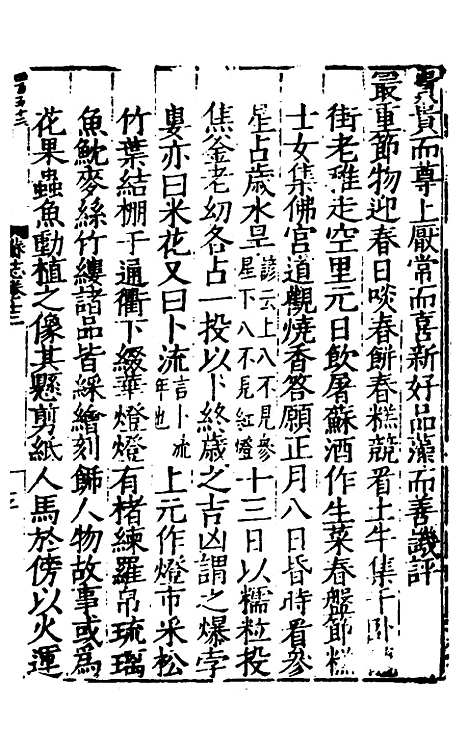 貴而尊上厭常而喜新好品藻而善譏評
最重節物迎春日啖春餅春糕競看土牛集于卧
街老稚走空里元日飲屠蘇酒作生菜春盤節糕
士女集佛宮道觀燒香答願正月八日昏時看參
星占歲水旱諺云上八不見參星下八不見紅燈十三日以糯粒投
焦釜老幼各占一投以卜終歲之吉凶謂之爆孛
婁亦曰米花又曰卜流言卜流年也上元作燈市采松
竹葉結棚于通衢下綴華燈燈有楮練羅帛琉璃
魚魫麥絲竹縷諸品皆綵繪刻飾人物故事或爲
花果蟲魚動植之像其懸剪紙人馬於傍以火運